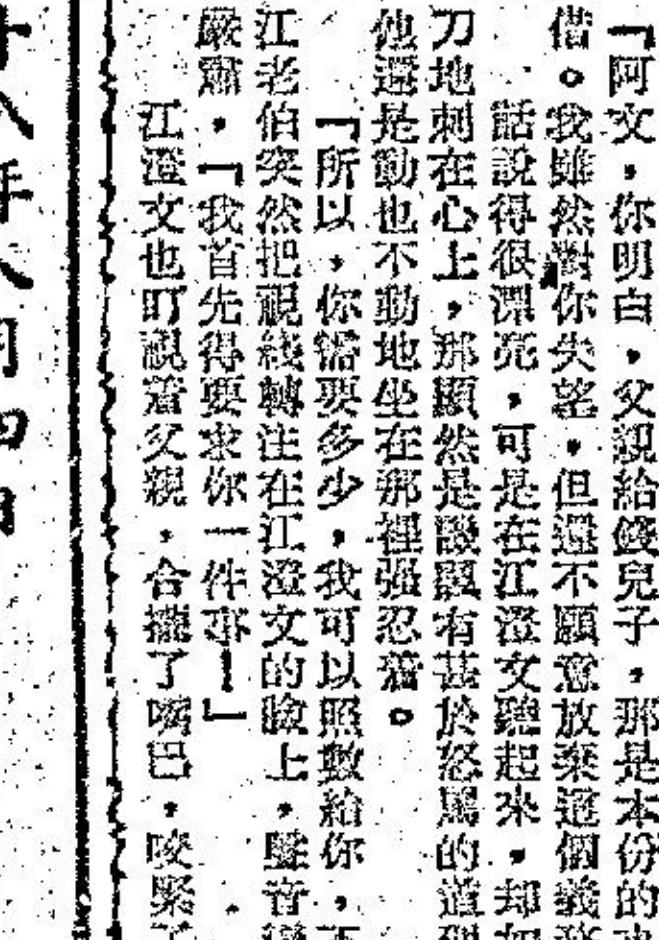 「阿文,你明白,父親給錢兒子,那是本份的
借。我雖然對你失望,但還不願意放棄這個義務
話說得很漂亮,可是在江澄文聽起來,却如
刀地刺在心上,那顯然是 有甚於怒罵的道理
他還是動也不動地坐在那裡强忍着。
「所以,你需要多少,我可以照數給你,不
江老伯突然把視綫轉注在江澄文的臉上,聲音變
嚴肅,「我首先得要求你一件事!」
江澄文也盯視着父親,合攏了嘴巴,咬緊了
年八月四日